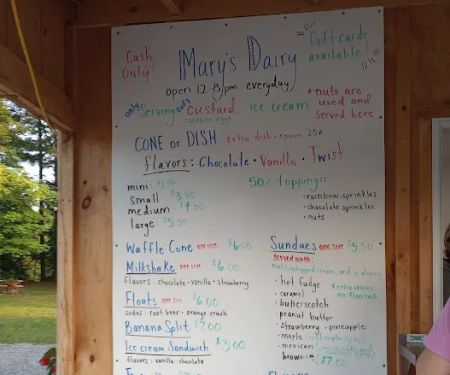 Cash Only!
Mary's Dairy
Gift cards available
open 12-8pm everyday
only serving soft custard ice cream
contains eggs
* nuts are used and served here
CONE or DISH extra dish + spoon 25¢
flavors: Chocolate · Vanilla · Twist
mini
small 3.00
medium 4.50
large 5.50
50¢ toppings:
· rainbow sprinkles
· chocolate sprinkles
· nuts
Waffle Cone one size $6.00
Milkshake one size $6.00
flavors: chocolate · vanilla · strawberry
Floats one size $6.00
sodas: root beer · orange crush
Banana Split $7.00
Ice cream Sandwich $3.00
flavors: vanilla · chocolate
Sundaes one size $5.50
served with
nuts, whipped cream, and a cherry
· hot fudge
· caramel
· butterscotch
· peanut butter
· strawberry · pineapple
· maple
· mexican
· brownie $7.00